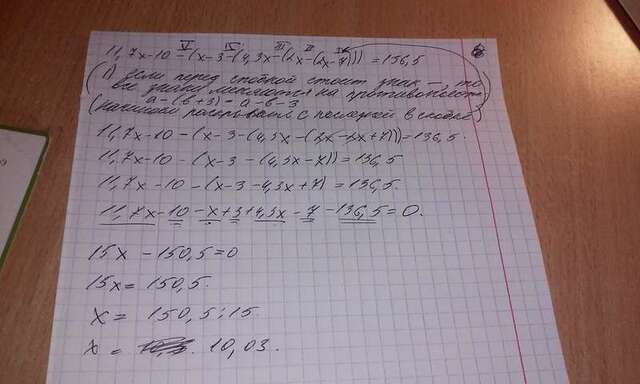 V IV III II I
11,7x-10 -(x-3-(4,3x-(2x-(2x-7)))) = 136,5
(1) если перед скобкой стоит знак -, то
все знаки меняются на противополож
a-(b+3) = a-b-3
(начинаем раскрывать с последней скобки)
11,7x-10 -(x-3-(4,3x-(2x-2x+7))) = 136,5.
11,7x-10 -(x-3-(4,3x-7)) = 136,5
11,7x-10 -(x-3-4,3x+7) = 136,5.
11,7x-10-x+3+4,3x-7-136,5=0.
15x -150,5=0
15x= 150,5.
x= 150,5:15.
x= 10,03.